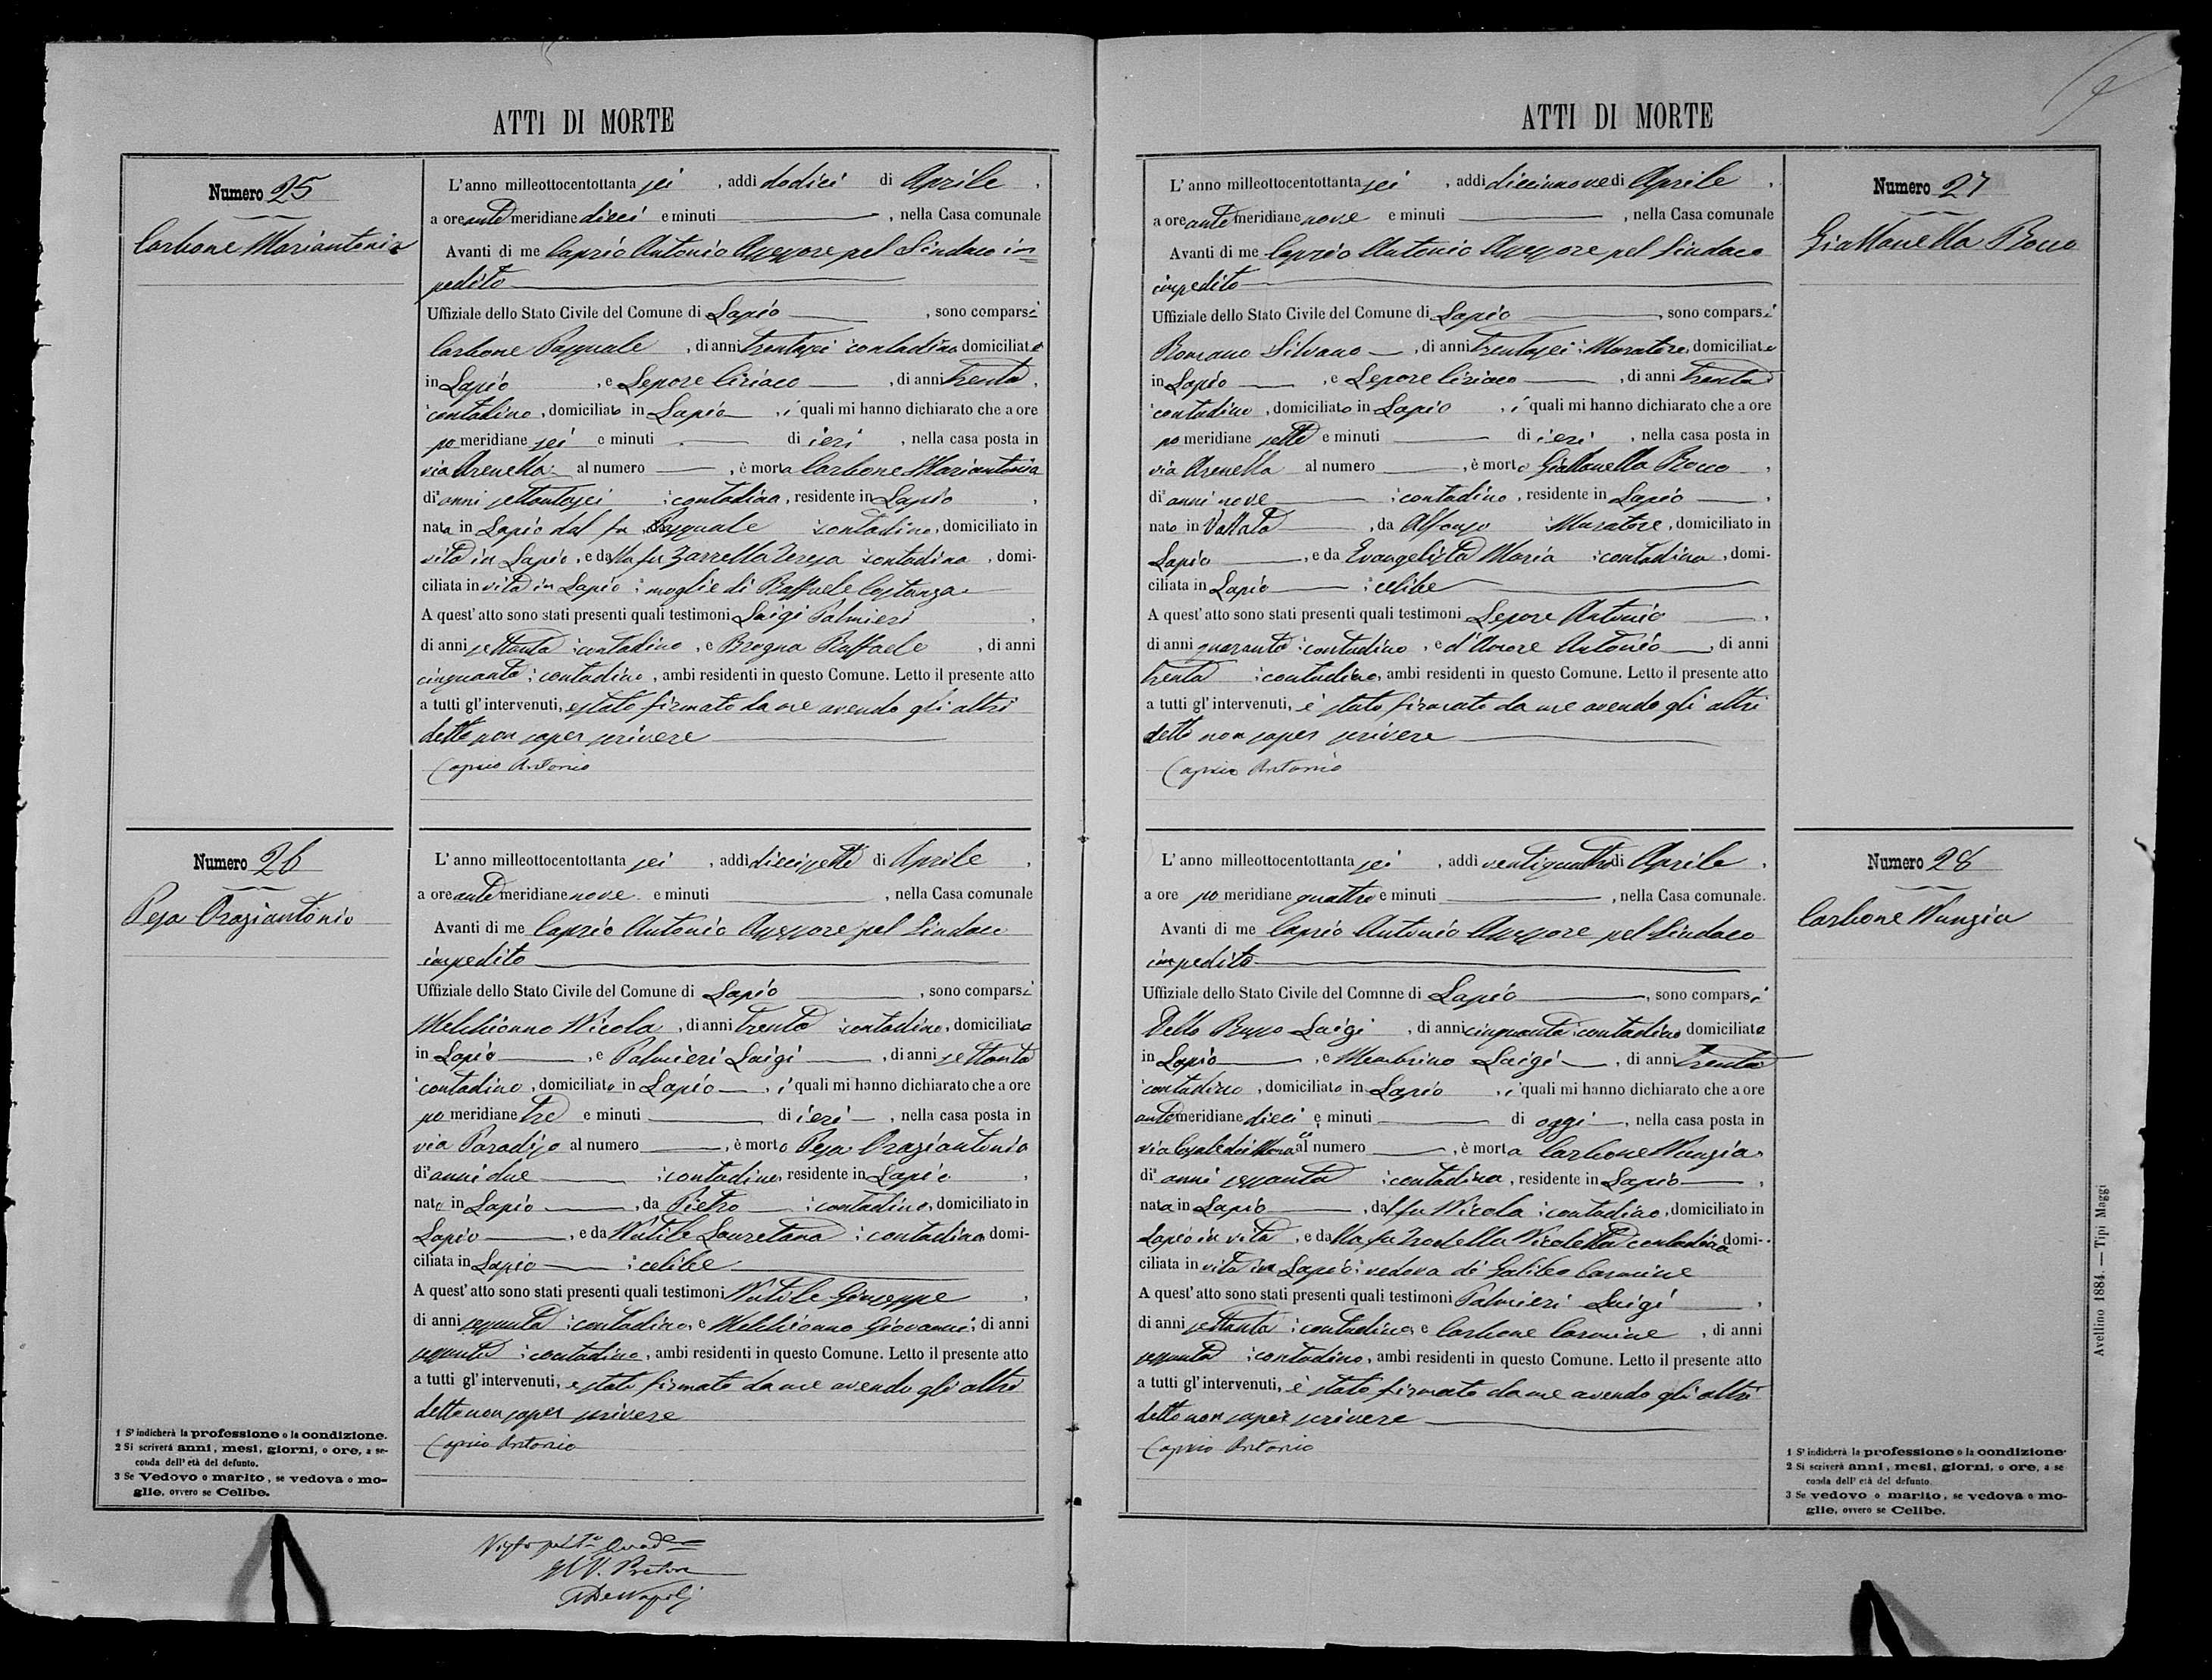 ATTI DI MORTE
Numero 25
Carbone Mariantonia
L'anno milleottocentottanta sei, addi dodici di Aprile,
a ore ante meridiane dieci e minuti , nella Casa comunale
Avanti di me Caprio Antonio Assessore pel Sindaco im=
pedito
Uffiziale dello Stato Civile del Comune di Lapio , sono comparsi
Carbone Pasquale , di anni trentasei contadino domiciliato
in Lapio , e Lepore Ciriaco , di anni trenta,
contadino, domiciliato in Lapio , i quali mi hanno dichiarato che a ore
po meridiane sei e minuti di ieri , nella casa posta in
via Arenella al numero , è morta Carbone Mariantonia
di anni settantasei : contadina, residente in Lapio ,
nata in Lapio dal fu Pasquale : contadino, domiciliato in
vita in Lapio, e dalla fu Zarrella Teresa contadina , domi-
ciliata in vita in Lapio : moglie di Raffaele Costanza
A quest'atto sono stati presenti quali testimoni Luigi Palmieri ,
di anni settanta : contadino, e Brogna Raffaele , di anni
cinquanta : contadino, ambi residenti in questo Comune. Letto il presente atto
a tutti gl'intervenuti, è stato firmato da me avendo gli altri
detto non saper scrivere
Caprio Antonio
Numero 26
Pesa Oraziantonio
L'anno milleottocentottanta sei, addi diecisette di Aprile,
a ore ante meridiane nove e minuti , nella Casa comunale
Avanti di me Caprio Antonio Assessore pel Sindaco
impedito
Uffiziale dello Stato Civile del Comune di Lapio , sono comparsi
Melchionno Nicola , di anni trenta contadino, domiciliato
in Lapio , e Palmieri Luigi , di anni settanta
contadino, domiciliato in Lapio , i quali mi hanno dichiarato che a ore
po meridiane tre e minuti di ieri , nella casa posta in
via Paradiso al numero , è morto Pesa Oraziantonio
di anni due : contadino, residente in Lapio ,
nato in Lapio , da Pietro : contadino, domiciliato in
Lapio , e da Nutile Lauretana : contadina domi-
ciliata in Lapio : celibe
A quest'atto sono stati presenti quali testimoni Nutile Giuseppe ,
di anni sessanta : contadino, e Melchionno Giovanni, di anni
sessanta : contadino, ambi residenti in questo Comune. Letto il presente atto
a tutti gl'intervenuti, è stato firmato da me avendo gli altri
detto non saper scrivere
Caprio Antonio
1 S'indicherà la professione o la condizione.
2 Si scriverà anni, mesi, giorni, o ore, a se-
conda dell'età del defunto.
3 Se Vedovo o marito, se vedova o mo-
glie, ovvero se Celibe.
Il V. Pretore
De Napoli
ATTI DI MORTE
Numero 27
Giattanella Rocco
L'anno milleottocentottanta sei, addi diecinnove di Aprile,
a ore ante meridiane nove e minuti , nella Casa comunale
Avanti di me Caprio Antonio Assessore pel Sindaco
impedito
Uffiziale dello Stato Civile del Comune di Lapio , sono comparsi
Romano Silvano , di anni trentasei : Muratore, domiciliato
in Lapio , e Lepore Ciriaco , di anni trenta
contadino, domiciliato in Lapio , i quali mi hanno dichiarato che a ore
po meridiane sette e minuti di ieri , nella casa posta in
via Arenella al numero , è morto Giattanella Rocco ,
di anni nove : contadino, residente in Lapio ,
nato in Vallata , da Alfonso : Muratore, domiciliato in
Lapio , e da Evangelista Maria : contadina, domi-
ciliata in Lapio : celibe
A quest'atto sono stati presenti quali testimoni Lepore Antonio ,
di anni quaranta : contadino, e d'Amore Antonio , di anni
trenta : contadino, ambi residenti in questo Comune. Letto il presente atto
a tutti gl'intervenuti, è stato firmato da me avendo gli altri
detto non saper scrivere
Caprio Antonio
Numero 28
Carbone Nunzia
L'anno milleottocentottanta sei, addi ventiquattro di Aprile,
a ore po meridiane quattro e minuti , nella Casa comunale.
Avanti di me Caprio Antonio Assessore pel Sindaco
impedito
Uffiziale dello Stato Civile del Comnne di Lapio , sono comparsi
Dello Russo Luigi , di anni cinquanta : contadino domiciliato
in Lapio , e Membrino Luigi , di anni trenta
contadino, domiciliato in Lapio , i quali mi hanno dichiarato che a ore
ante meridiane dieci e minuti di oggi , nella casa posta in
via al numero , è morta Carbone Nunzia
di anni sessanta : contadina, residente in Lapio ,
nata in Lapio , dal fu Nicola : contadino, domiciliato in
Lapio in vita , e dalla fu Nicoletta contadina domi-
ciliata in vita in Lapio : vedova di Galileo Carmine
A quest'atto sono stati presenti quali testimoni Palmieri Luigi ,
di anni settanta : contadino, e Carbone Carmine , di anni
sessanta : contadino, ambi residenti in questo Comune. Letto il presente atto
a tutti gl'intervenuti, è stato firmato da me avendo gli altri
detto non saper scrivere
Caprio Antonio
1 S'indicherà la professione o la condizione
2 Si scriverà anni, mesi, giorni, o ore, a se
conda dell'età del defunto.
3 Se vedovo o marito, se vedova o mo-
glie, ovvero se Celibe.
Avellino 1884. — Tipi Maggi